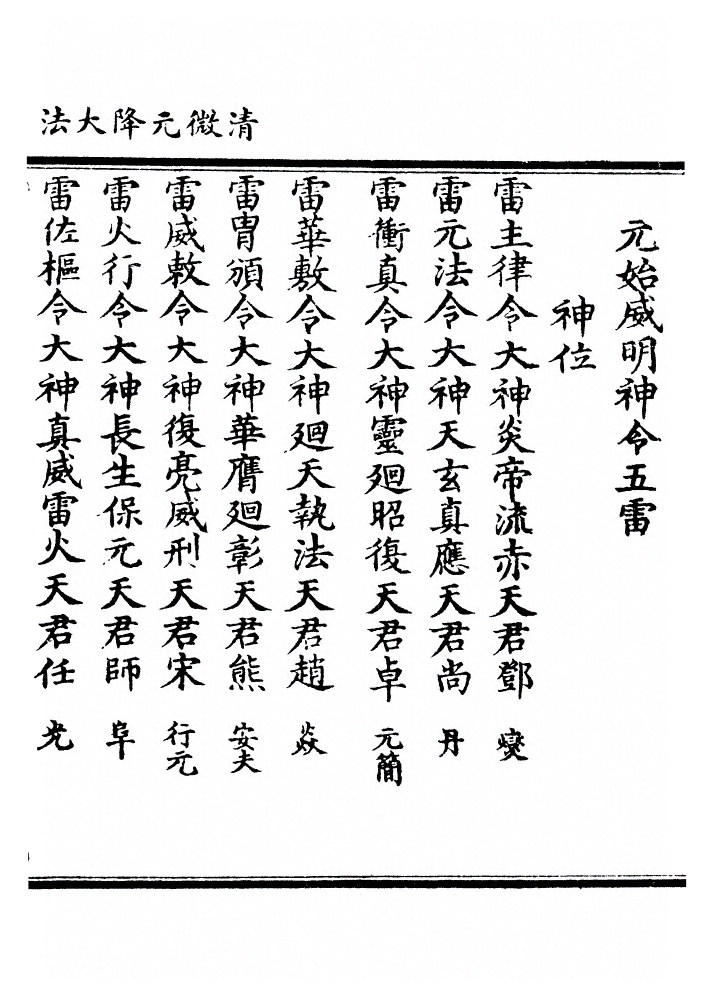 清微元降大法
元始威明神令五雷
神位
雷主律令大神炎帝流赤天君鄧燮
雷元法令大神天玄真應天君尚丹
雷衝真令大神靈廻昭復天君卓元簡
雷華敷令大神廻天執法天君趙焱
雷胄頒令大神華膺廻彰天君熊安夫
雷威敕令大神復亮威刑天君宋行元
雷火行令大神長生保元天君師阜
雷佐樞令大神真威雷火天君任光